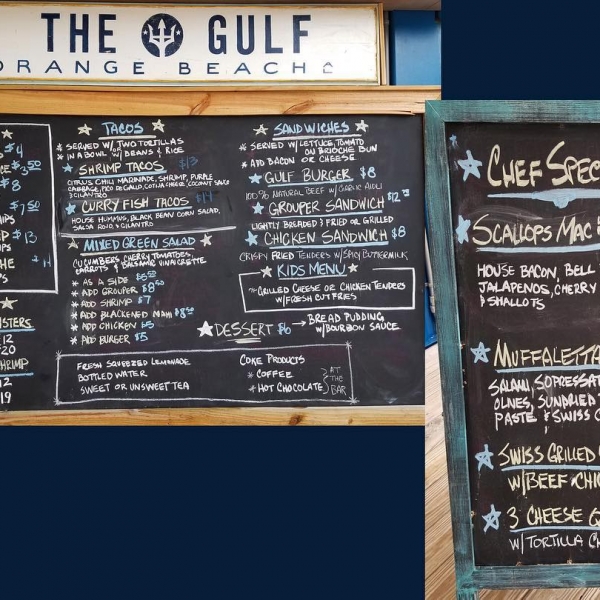 THE GULF
ORANGE BEACH
$4
$3.50
$8
$7.50
HIPS
$13
HE
STERS
12
$20
SHRIMP
12
19
TACOS
* SERVED W/ TWO TORTILLAS
* IN A BOWL W/ BEANS & RICE
SHRIMP TACOS $13
CITRUS CHILI MARINADE, SHRIMP, PURPLE
CABBAGE, PICO DE GALLO, COTIJA CHEESE, COCONUT SAUCE
& CILANTRO
CURRY FISH TACOS
HOUSE HUMMUS, BLACK BEAN CORN SALAD,
SALSA ROJO & CILANTRO
MIXED GREEN SALAD
CUCUMBERS, CHERRY TOMATOES,
CARROTS & BALSAMIC VINAIGRETTE
* AS A SIDE
* ADD GROUPER
* ADD SHRIMP $7
* ADD BLACKENED MAHI
* ADD CHICKEN $5
* ADD BURGER $5
SANDWICHES
* SERVED W/ LETTUCE, TOMATO
ON BRIOCHE BUN
* ADD BACON OR CHEESE
GULF BURGER $8
100% NATURAL BEEF W/ GARLIC AIOLI
GROUPER SANDWICH
LIGHTLY BREADED & FRIED OR GRILLED
CHICKEN SANDWICH $8
CRISPY FRIED TENDERS W/ SPICY BUTTERMILK
KIDS MENU
GRILLED CHEESE OR CHICKEN TENDERS
W/ FRESH CUT FRIES
DESSERT $6 → BREAD PUDDING
W/ BOURBON SAUCE
FRESH SQUEEZED LEMONADE
BOTTLED WATER
SWEET OR UNSWEET TEA
COKE PRODUCTS
* COFFEE
* HOT CHOCOLATE
AT
THE
BAR
CHEF SPEC
SCALLOPS MAC
HOUSE BACON, BELL
JALAPENOS, CHERRY
& SHALLOTS
MUFFALETTA
SALAMI, SOPRESSAT
OLIVES, SUNDRIED T
PASTE & SWISS C
SWISS GRILLED
W/ BEEF CHIC
3 CHEESE Q
W/ TORTILLA CH